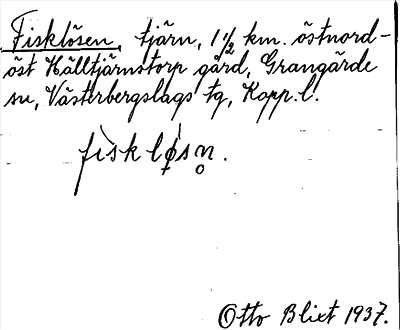 Fisklösen, tjärn, 1 1/2 km. östnord-
öst Hälltjärnstorp gård, Grangärde
sn, Västerbergslags tg, Kopp. l.
fìsklø̀sn̥.
Otto Blixt 1937.